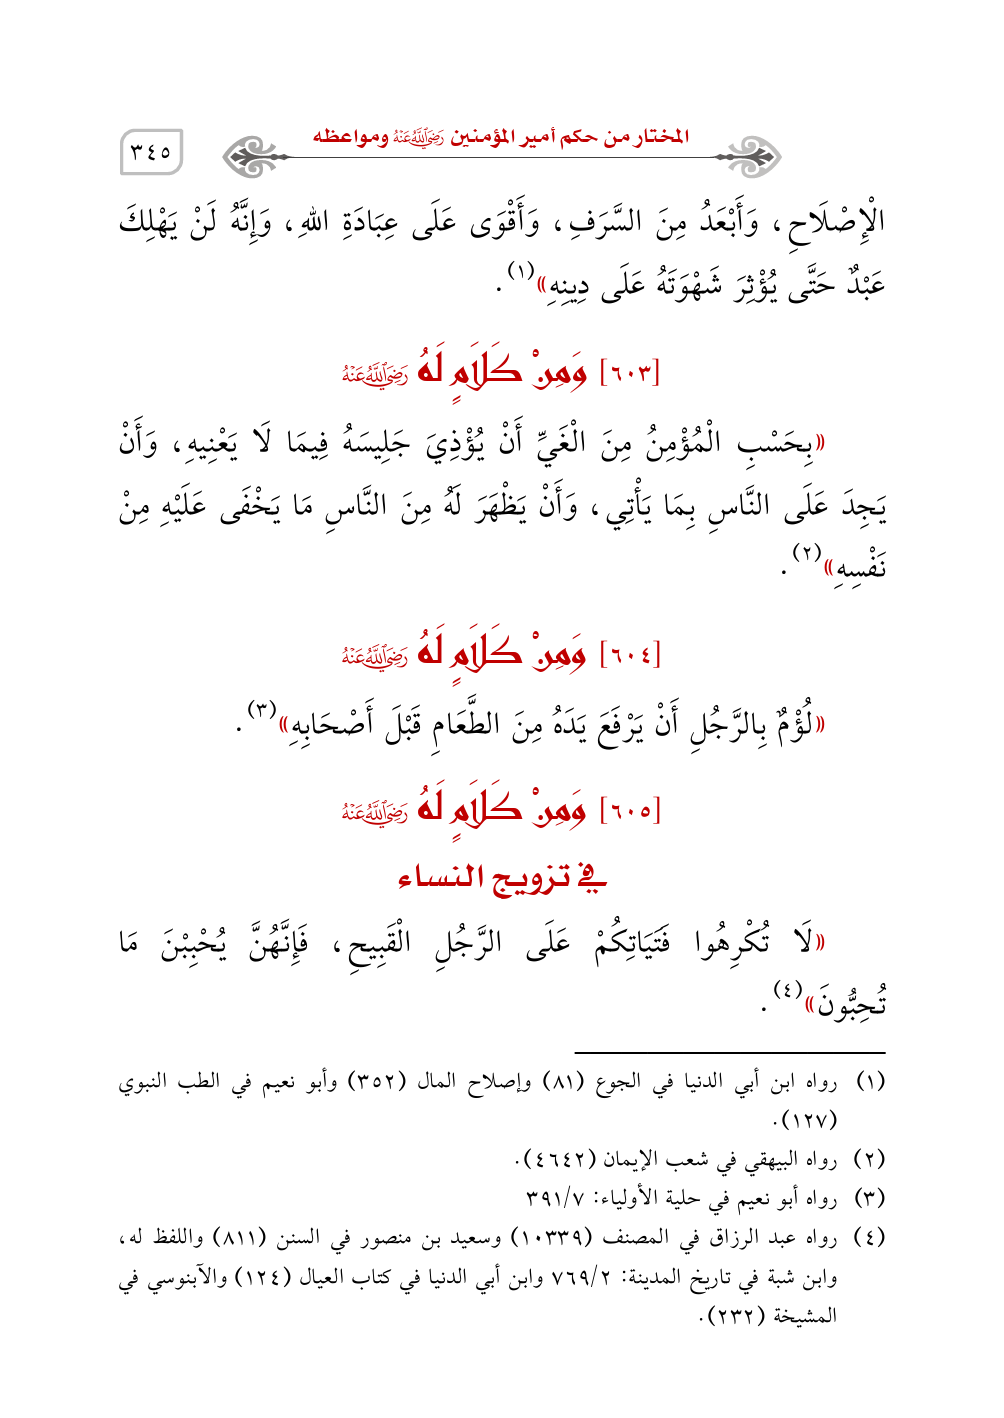 المختار من حكم أمير المؤمنين رَضِيَ اللَّهُ عَنْهُ ومواعظه
٣٤٥
الْإِصْلَاحِ، وَأَبْعَدُ مِنَ السَّرَفِ، وَأَقْوَى عَلَى عِبَادَةِ اللهِ، وَإِنَّهُ لَنْ يَهْلِكَ
عَبْدٌ حَتَّى يُؤْثِرَ شَهْوَتَهُ عَلَى دِينِهِ»(١).
[٦٠٣] وَمِنْ كَلَامٍ لَهُ رَضِيَ اللَّهُ عَنْهُ
«بِحَسْبِ الْمُؤْمِنُ مِنَ الْغَيِّ أَنْ يُؤْذِيَ جَلِيسَهُ فِيمَا لَا يَعْنِيهِ، وَأَنْ
يَجِدَ عَلَى النَّاسِ بِمَا يَأْتِي، وَأَنْ يَظْهَرَ لَهُ مِنَ النَّاسِ مَا يَخْفَى عَلَيْهِ مِنْ
نَفْسِهِ»(٢).
[٦٠٤] وَمِنْ كَلَامٍ لَهُ رَضِيَ اللَّهُ عَنْهُ
«لُؤْمٌ بِالرَّجُلِ أَنْ يَرْفَعَ يَدَهُ مِنَ الطَّعَامِ قَبْلَ أَصْحَابِهِ»(٣).
[٦٠٥] وَمِنْ كَلَامٍ لَهُ رَضِيَ اللَّهُ عَنْهُ
في تزويج النساء
«لَا تُكْرِهُوا فَتَيَاتِكُمْ عَلَى الرَّجُلِ الْقَبِيحِ، فَإِنَّهُنَّ يُحْبِبْنَ مَا
تُحِبُّونَ»(٤).
(١) رواه ابن أبي الدنيا في الجوع (٨١) وإصلاح المال (٣٥٢) وأبو نعيم في الطب النبوي
(١٢٧).
(٢) رواه البيهقي في شعب الإيمان (٤٦٤٢).
(٣) رواه أبو نعيم في حلية الأولياء: ٣٩١/٧
(٤) رواه عبد الرزاق في المصنف (١٠٣٣٩) وسعيد بن منصور في السنن (٨١١) واللفظ له،
وابن شبة في تاريخ المدينة: ٧٦٩/٢ وابن أبي الدنيا في كتاب العيال (١٢٤) والآبنوسي في
المشيخة (٢٣٢).